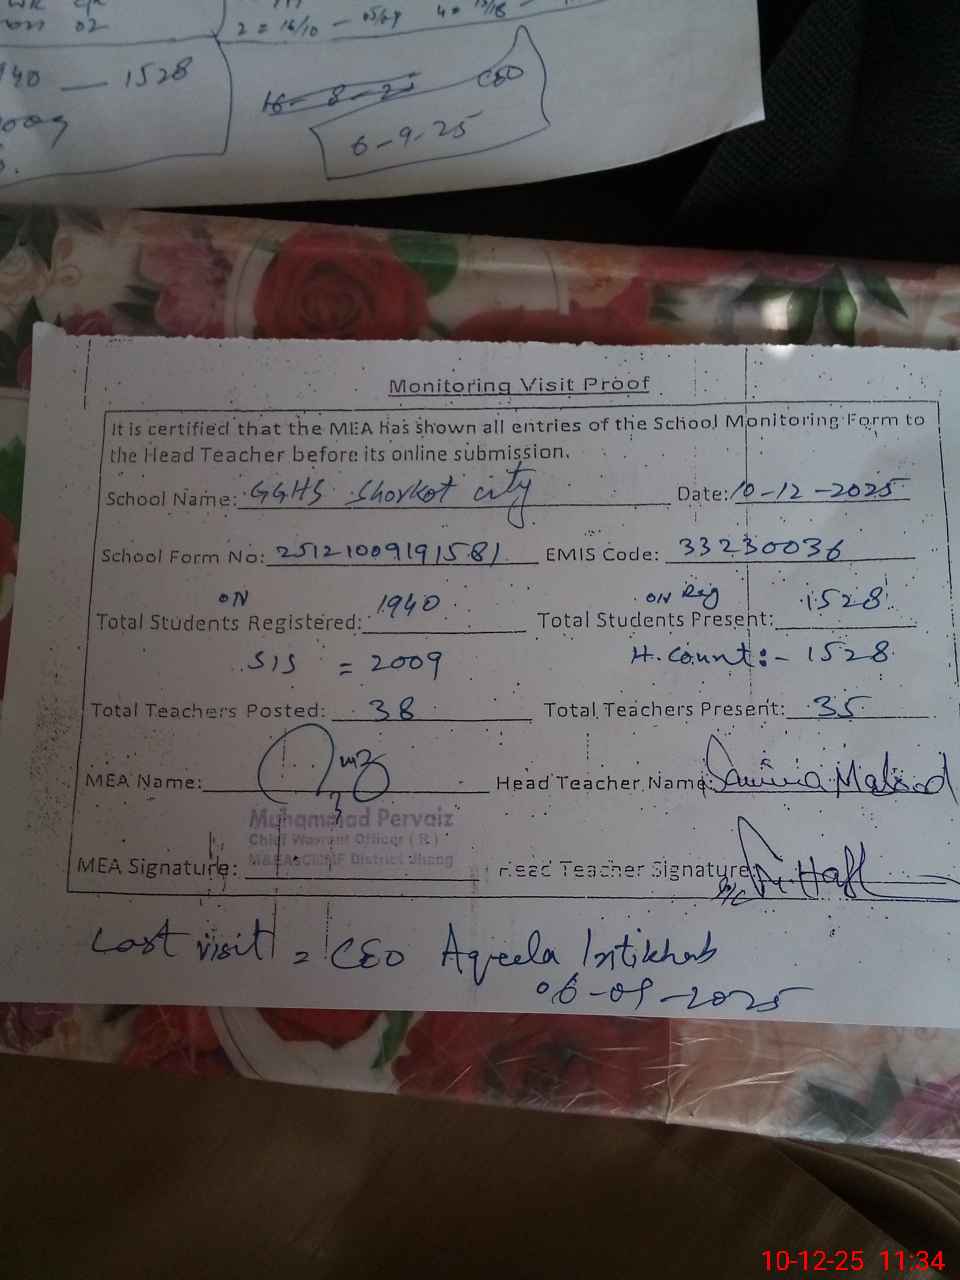 02
2 = 16/10
40 — 1528
2009
16-8-25 CEO
6-9-25
Monitoring Visit Proof
It is certified that the MEA has shown all entries of the School Monitoring Form to
the Head Teacher before its online submission.
School Name: GGHS Shorkot city Date: 10-12-2025
School Form No: 25121009191581 EMIS Code: 33230036
ON ON Reg
Total Students Registered: 1940 Total Students Present: 1528
SIS = 2009 H. Count:- 1528
Total Teachers Posted: 38 Total Teachers Present: 35
MEA Name: Head Teacher Name:
Muhammad Pervaiz
Chief Warrant Officer (R)
District Jhang
MEA Signature: Head Teacher Signature:
Last visit = CEO Aqeela Intikhab
06-09-2025
10-12-25 11:34